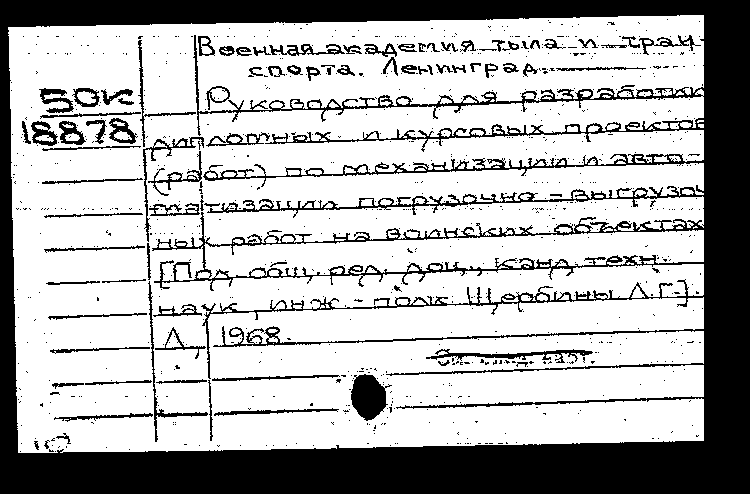 Военная академия тыла и тран-
спорта. Ленинград.
50к Руководство для разработки
18878 дипломных и курсовых проектов
(работ) по механизации и авто-
матизации погрузочно-выгрузоч
ных работ на воинских объектах
[Под общ. ред. доц., канд. техн.
наук, инж.-полк. Щербины Л.Г.].
Л., 1968.